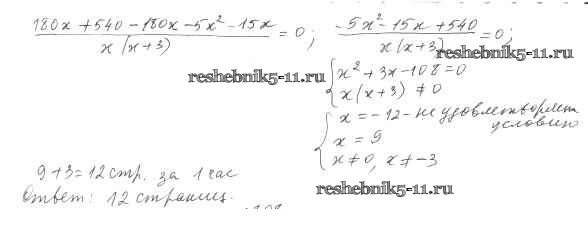 (180x + 540 - 180x - 5x² - 15x) / (x(x+3)) = 0; (-5x² - 15x + 540) / (x(x+3)) = 0;
reshebnik5-11.ru
reshebnik5-11.ru
{ x² + 3x - 108 = 0
x(x+3) ≠ 0
{ x = -12 - не удовлетворяет
условию
x = 9
x ≠ 0, x ≠ -3
9+3=12 стр. за 1 час
Ответ: 12 страниц.
reshebnik5-11.ru